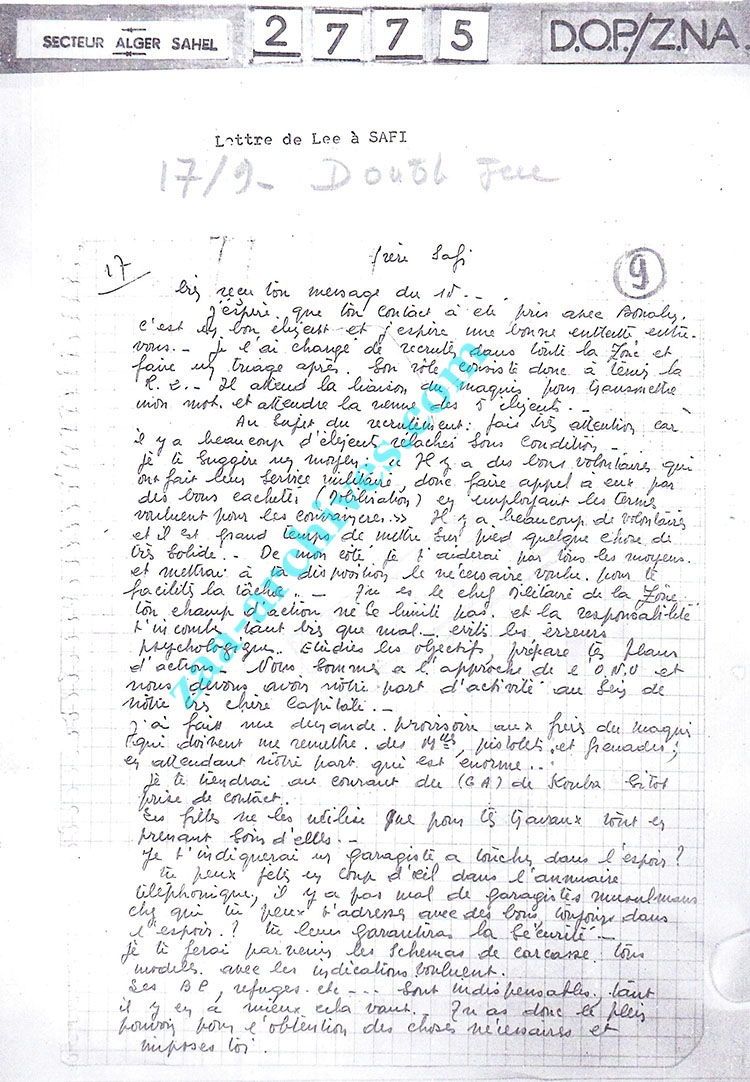 SECTEUR ALGER SAHEL 2775 D.O.P./Z.N.A
Lettre de Lee à SAFI
17/9- Doubl
17 frère Safi 9
très reçu ton message du 15
j'espère que ton contact à ete pris avec
c'est un bon élément et j'espère une bonne entente entre
vous.- je l'ai chargé de recruter dans toute la Zone et
faire un triage après. Son rôle consiste donc à tenir la
Il attend la liaison du maquis pour transmettre
mon mot. et attendre la venue des 5 éléments
Au sujet du recrutement: fais très attention car
il y a beaucoup d'éléments relachés sous condition -
je te suggère un moyen. « Il y a des bons volontaires qui
ont fait leur service militaire, donc faire appel à eux par
des bons cachetés (Mobilisation) en employant les termes
voulues pour les convaincre. » Il y a beaucoup de volontaires
et il est grand temps de mettre sur pied quelque chose de
très solide. - De mon coté je t'aiderai par tous les moyens.
et mettrai à ta disposition le nécessaire voulu pour te
faciliter la tâche. - Tu es le chef militaire de la Zone,
ton champ d'action ne se limite pas. et la responsabilité
t'incombe tant bien que mal - evite les erreurs
psychologique. Etudies les objectifs, prépare tes plans
d'actions - Nous sommes a l'approche de l'O.N.U et
nous devons avoir nôtre part d'activité au sein de
nôtre très chère Capitale. -
j'ai fait une demande provisoire aux frères du maquis
qui doivent me remettre des pistolets et grenades;
en attendant nôtre part qui est énorme..
je te tiendrai au courant du (GA) de Kouba sitot
prise de contact.
Les filles ne les utilise que pour tes travaux tout en
prenant soin d'elles. -
je t'indiquerai un garagiste a toucher dans l'espoir?
tu peux jeter un coup d'œil dans l'annuaire
téléphonique, il y a pas mal de garagistes musulmans
chez qui tu peux t'adresser avec des bons, toujours dans
l'espoir.? tu leur garantiras la sécurité -
je te ferai parvenir les schemas de carcasse tous
modeles avec les indications
Les BP, refuges. etc --- sont indispensables, tant
il y en à mieux cela vaut. Tu as donc le plein
pouvoir pour l'obtention des choses nécessaires et
imposes toi.
zaa-archives.com